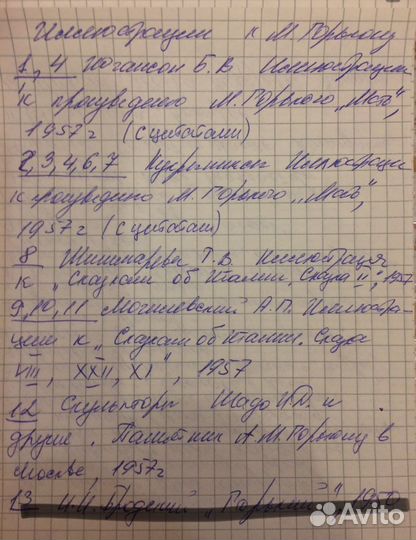 Иллюстрации к М. Горькому
1, 4 Иогансон Б. В. Иллюстрации
к произведению М. Горького „Мать",
1957 г (с цитатами)
2, 3, 4, 6, 7 Кукрыниксы Иллюстрации
к произведению М. Горького „Мать",
1957 г (с цитатами)
8 Шишмарева Т. В. Иллюстрация
к „Сказкам об Италии. Сказка II", 1957
9, 10, 11 Могилевский А. П. Иллюстра-
ции к „Сказкам об Италии. Сказка
VIII, XXII, XI", 1957
12 Скульпторы Шадр И. Д. и
другие. Памятник А. М. Горькому в
Москве, 1957 г
13 И. И. Бродский „Горький", 1950
Avito